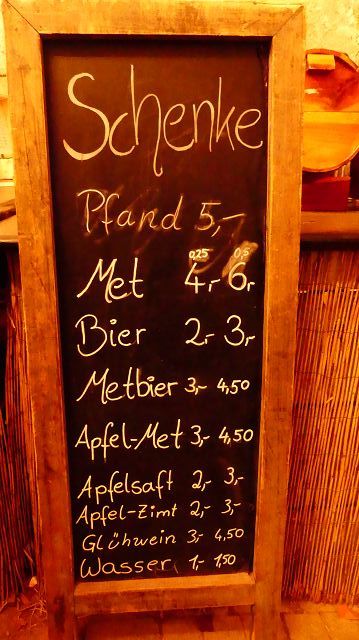 Schenke
Pfand 5,-
0,25 0,5
Met 4,- 6,-
Bier 2,- 3,-
Metbier 3,- 4,50
Apfel-Met 3,- 4,50
Apfelsaft 2,- 3,-
Apfel-Zimt 2,- 3,-
Glühwein 3,- 4,50
Wasser 1,- 1,50